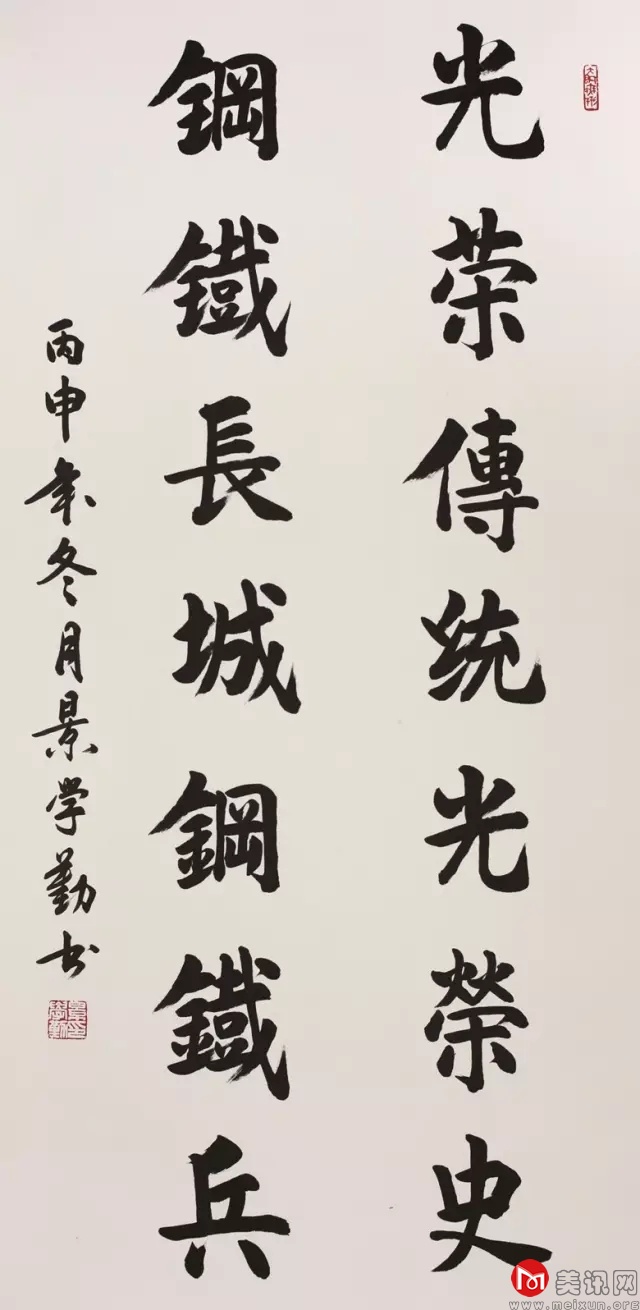 光荣傳统光榮史
鋼鐵長城鋼鐵兵
丙申年冬月景学勤书
景學勤印
美讯网
www.meixun.org